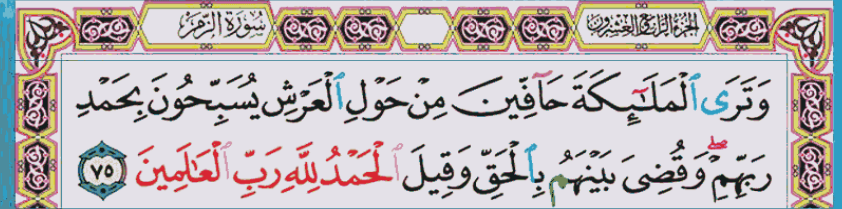 سُورَةُ الزُّمَرِ الجُزْءُ الرَّابِعُ وَالعِشْرُونَ
وَتَرَى ٱلْمَلَٰٓئِكَةَ حَآفِّينَ مِنْ حَوْلِ ٱلْعَرْشِ يُسَبِّحُونَ بِحَمْدِ
رَبِّهِمْۖ وَقُضِىَ بَيْنَهُم بِٱلْحَقِّ وَقِيلَ ٱلْحَمْدُ لِلَّهِ رَبِّ ٱلْعَٰلَمِينَ ٧٥